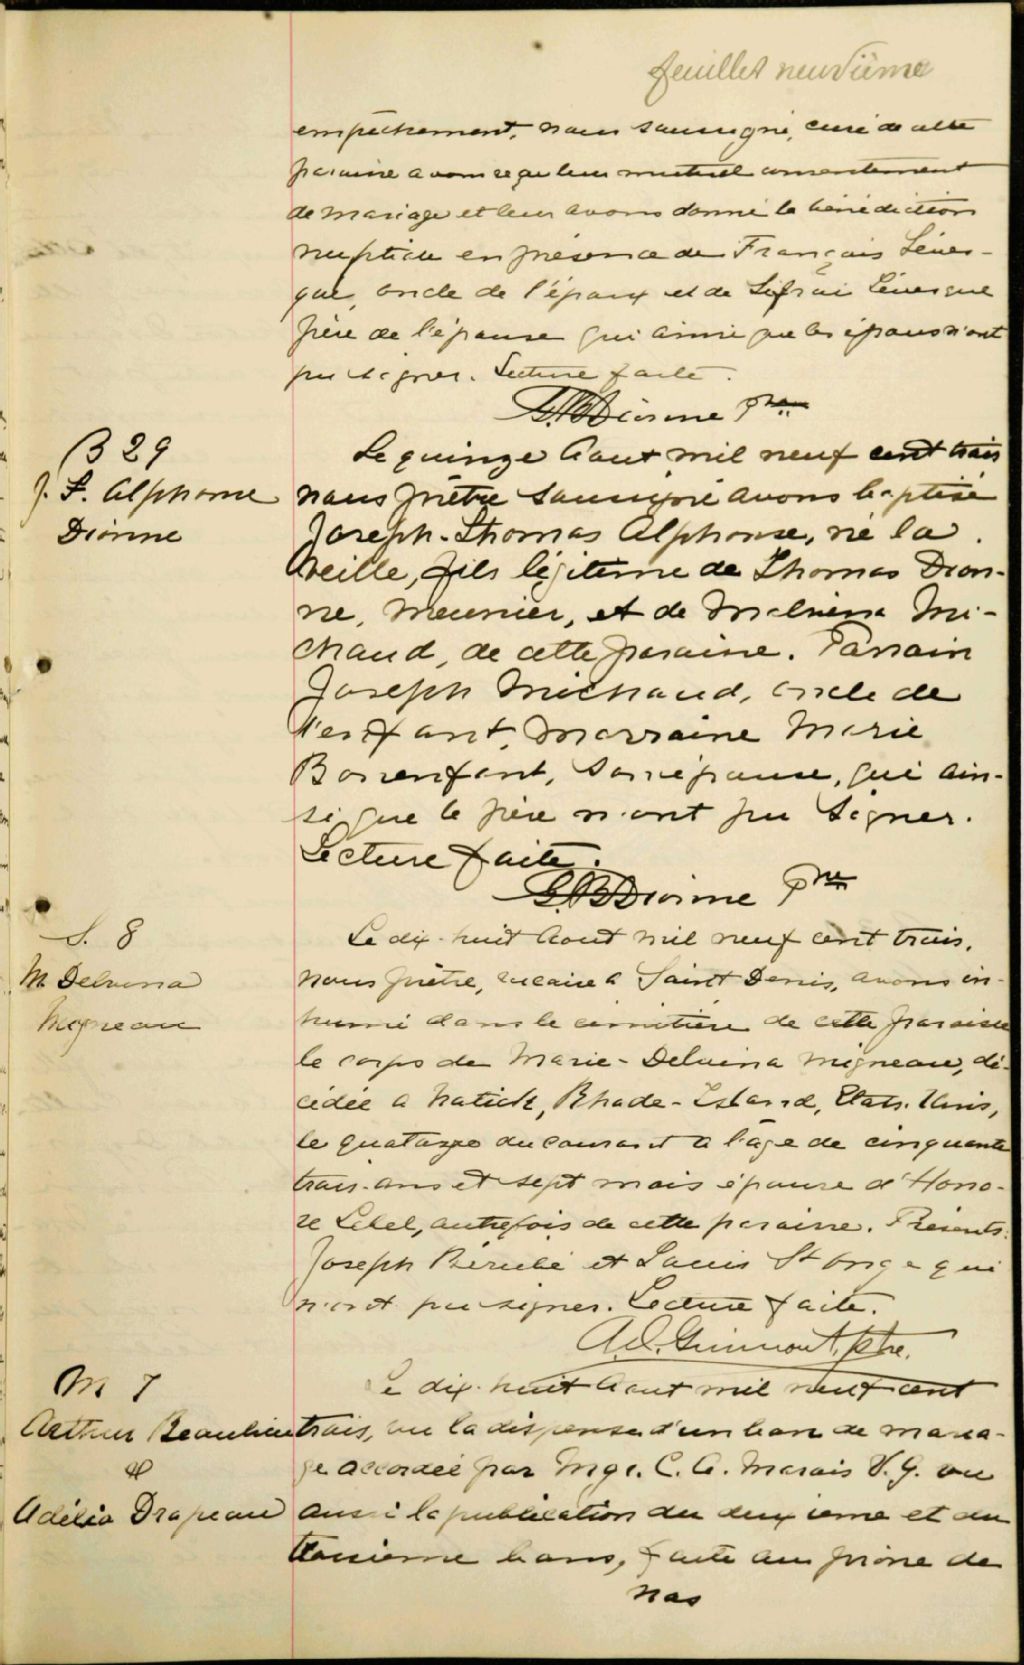 feuillet neuvième
empêchement, nous soussigné, curé de cette
paroisse avons reçu leur mutuel consentement
de mariage et leur avons donné la bénédiction
nuptiale en présence de François Léves-
que, oncle de l'époux et de Léveque
père de l'épouse qui ainsi que les époux n'ont
pu signer. Lecture faite.
G.B Dionne Ptre
B 29
J. T. Alphonse
Dionne
Le quinze Aout mil neuf cent trois
nous prêtre soussigné avons baptisé
Joseph-Thomas Alphonse, né la
veille, fils légitime de Thomas Dion-
ne, meunier, et de Malvina Mi-
chaud, de cette paroisse. Parrain
Joseph Michaud, oncle de
l'enfant, marraine Marie
Bonenfant, son épouse, qui ain-
si que le père n'ont pu signer.
Lecture faite.
G.B Dionne Ptre
S. 8
M. Delvina
Migneau
Le dix-huit Aout mil neuf cent trois,
nous prêtre, vicaire à Saint Denis, avons in-
humé dans le cimetière de cette paroisse
le corps de Marie-Delvina Migneau, dé-
cédée a Natick, Rhode-Island, Etats-Unis,
le quatorze du courant a l'âge de cinquante
trois ans et sept mois épouse d'Hono-
ré Lebel, autrefois de cette paroisse. Présents:
Joseph Bérubé et Louis St Onge qui
n'ont pu signer. Lecture faite.
A.O. Guimont, ptre.
M 7
Arthur Beaulieu
&
Adélia Drapeau
Le dix-huit Aout mil neuf cent
trois, vu la dispense d'un ban de maria-
ge accordée par Mgr. C. A. Marois V.G. vu
aussi la publication du deuxieme et du
troisieme bans, faite au prône de
nos